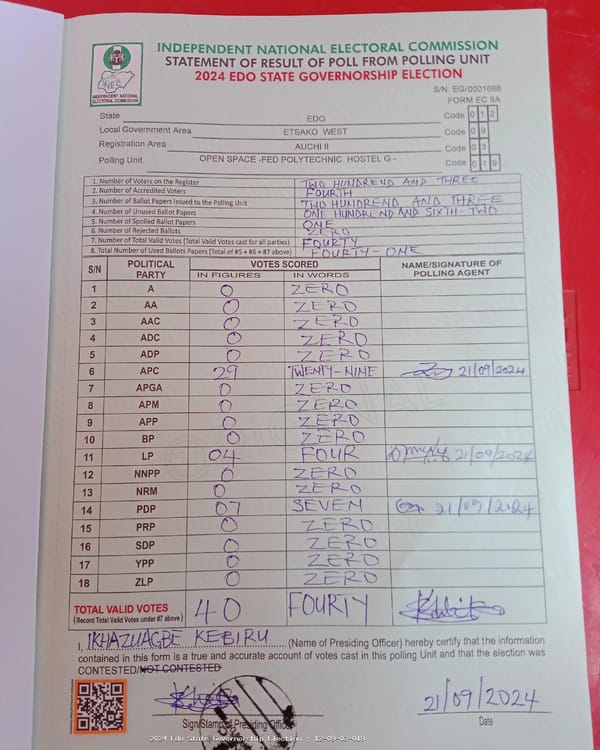 INEC
INDEPENDENT NATIONAL ELECTORAL COMMISSION
INDEPENDENT NATIONAL ELECTORAL COMMISSION
STATEMENT OF RESULT OF POLL FROM POLLING UNIT
2024 EDO STATE GOVERNORSHIP ELECTION
S/N: EG/0001666
FORM EC 8A
State EDO Code 0 1 2
Local Government Area ETSAKO WEST Code 0 9
Registration Area AUCHI II Code 0 3
Polling Unit OPEN SPACE -FED POLYTECHNIC HOSTEL G - Code 0 1 9
1. Number of Voters on the Register TWO HUNDREND AND THREE
2. Number of Accredited Voters FOURTH
3. Number of Ballot Papers Issued to the Polling Unit TWO HUNDREND AND THREE
4. Number of Unused Ballot Papers ONE HUNDREND AND SIXTH-TWO
5. Number of Spoiled Ballot Papers ONE
6. Number of Rejected Ballots ZERO
7. Number of Total Valid Votes (Total Valid Votes cast for all parties) FOURTY
8. Total Number of Used Ballots Papers (Total of #5 + #6 + #7 above) FOURTY-ONE
S/N POLITICAL PARTY VOTES SCORED NAME/SIGNATURE OF POLLING AGENT
IN FIGURES IN WORDS
1 A 0 ZERO
2 AA 0 ZERO
3 AAC 0 ZERO
4 ADC 0 ZERO
5 ADP 0 ZERO
6 APC 29 TWENTY-NINE 21/09/2024
7 APGA 0 ZERO
8 APM 0 ZERO
9 APP 0 ZERO
10 BP 0 ZERO
11 LP 04 FOUR 21/09/2024
12 NNPP 0 ZERO
13 NRM 0 ZERO
14 PDP 07 SEVEN 21/09/2024
15 PRP 0 ZERO
16 SDP 0 ZERO
17 YPP 0 ZERO
18 ZLP 0 ZERO
TOTAL VALID VOTES 40 FOURTY
(Record Total Valid Votes under #7 above)
I, IKHAZUAGBE KEBIRU (Name of Presiding Officer) hereby certify that the information
contained in this form is a true and accurate account of votes cast in this polling Unit and that the election was
CONTESTED/NOT CONTESTED
21/09/2024
Sign/Stamp of Presiding Officer Date
2024 Edo State Governorship Election : 12-09-03-019